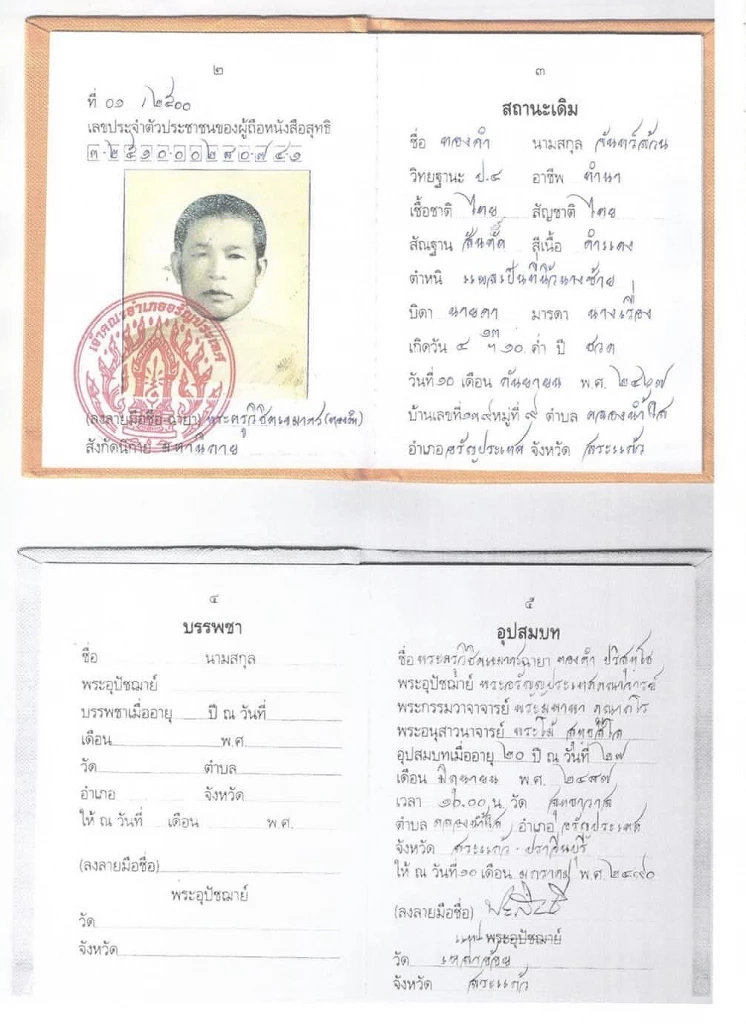 ๒
ที่ ๐๑ /๒๕๐๐
เลขประจำตัวประชาชนของผู้ถือหนังสือสุทธิ
๓-๒๕๑๐๐๐๒๘๐๗๔๑
เจ้าคณะอำเภออรัญประเทศ
(ลงลายมือชื่อ-ฉายา) (ทองดำ)
สังกัดนิกาย มหานิกาย
๓
สถานะเดิม
ชื่อ ทองดำ นามสกุล
วิทยฐานะ ป.๔ อาชีพ ทำนา
เชื้อชาติ ไทย สัญชาติ ไทย
สัณฐาน สันทัด สีเนื้อ ดำแดง
ตำหนิ แผลเป็นที่นิ้วนางซ้าย
บิดา นายดา มารดา นางเรือง
เกิดวัน ๔ ฯ ๑๐ ค่ำ ปี ชวด
วันที่ ๑๐ เดือน กันยายน พ.ศ.
บ้านเลขที่ หมู่ที่ ๙ ตำบล คลองน้ำใส
อำเภอ อรัญประเทศ จังหวัด สระแก้ว
๔
บรรพชา
ชื่อ นามสกุล
พระอุปัชฌาย์
บรรพชาเมื่ออายุ ปี ณ วันที่
เดือน พ.ศ
วัด ตำบล
อำเภอ จังหวัด
ให้ ณ วันที่ เดือน พ.ศ.
(ลงลายมือชื่อ)
พระอุปัชฌาย์
วัด
จังหวัด
๕
อุปสมบท
ชื่อ ฉายา ทองดำ ปริสุทฺโธ
พระอุปัชฌาย์ พระอรัญประเทศคณาจารย์
พระกรรมวาจาจารย์ คุณากโร
พระอนุสาวนาจารย์ พระโม้
อุปสมบทเมื่ออายุ ๒๐ ปี ณ วันที่ ๒๗
เดือน มิถุนายน พ.ศ. ๒๔๘๗
เวลา ๑๖.๐๐ น. วัด สุทธาวาส
ตำบล คลองน้ำใส อำเภอ อรัญประเทศ
จังหวัด สระแก้ว - ปราจีนบุรี
ให้ ณ วันที่ ๑๐ เดือน มกราคม พ.ศ. ๒๔๙๐
(ลงลายมือชื่อ)
แทน พระอุปัชฌาย์
วัด
จังหวัด สระแก้ว